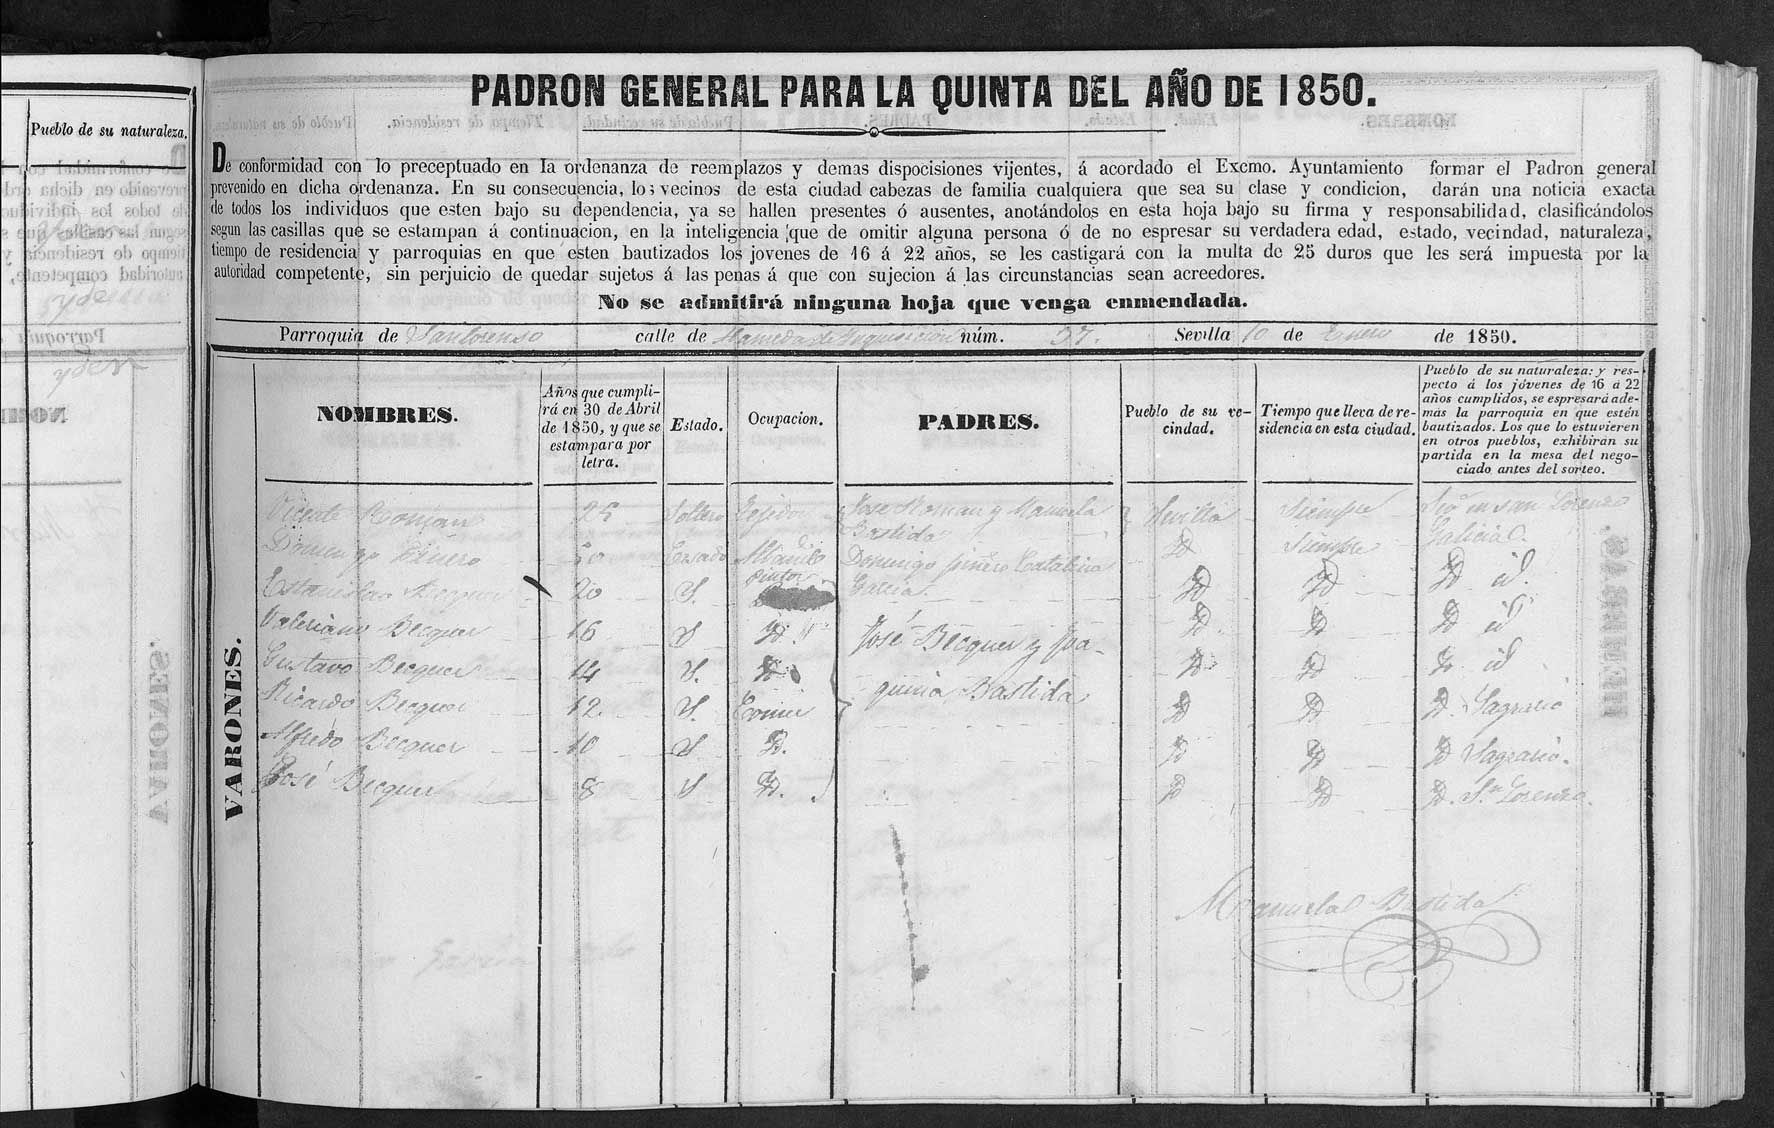 Pueblo de su naturaleza.
PADRON GENERAL PARA LA QUINTA DEL AÑO DE 1850.
De conformidad con lo preceptuado en la ordenanza de reemplazos y demas dispocisiones vijentes, á acordado el Excmo. Ayuntamiento formar el Padron general
prevenido en dicha ordenanza. En su consecuencia, los vecinos de esta ciudad cabezas de familia cualquiera que sea su clase y condicion, darán una noticia exacta
de todos los individuos que esten bajo su dependencia, ya se hallen presentes ó ausentes, anotándolos en esta hoja bajo su firma y responsabilidad, clasificándolos
segun las casillas que se estampan á continuacion, en la inteligencia que de omitir alguna persona ó de no espresar su verdadera edad, estado, vecindad, naturaleza,
tiempo de residencia y parroquias en que esten bautizados los jovenes de 16 á 22 años, se les castigará con la multa de 25 duros que les será impuesta por la
autoridad competente, sin perjuicio de quedar sujetos á las penas á que con sujecion á las circunstancias sean acreedores.
No se admitirá ninguna hoja que venga enmendada.
Parroquia de San Lorenso calle de Alameda de núm. 37. Sevilla 10 de Enero de 1850.
NOMBRES.
Años que cumplirá en 30 de Abril de 1850, y que se estampara por letra.
Estado.
Ocupacion.
PADRES.
Pueblo de su vecindad.
Tiempo que lleva de residencia en esta ciudad.
Pueblo de su naturaleza: y respecto á los jóvenes de 16 á 22 años cumplidos, se espresará ademas la parroquia en que estén bautizados. Los que lo estuvieren en otros pueblos, exhibirán su partida en la mesa del negociado antes del sorteo.
VARONES.
Vicente Roman 25 Soltero Tejedor José Roman y Manuela Bastida Sevilla Siempre en san Lorenzo
Domingo Piñero 50 Casado Domingo piñero Catalina Garcia. Id Siempre Galicia.
Estanislao Becquer 20 S. Pintor Id Id Id id.
Valeriano Becquer 16 S Id. José Becquer y Joaquina Bastida Id Id Id id
Gustavo Becquer 14 S. Id Id Id Id id
Ricardo Becquer 12. S. Id Id Id. Sagrario
Alfredo Becquer 10 S Id. Id Id Id Sagrario.
José Becquer 8 S Id. Id Id Id. Sn Lorenzo.
Manuela Bastida